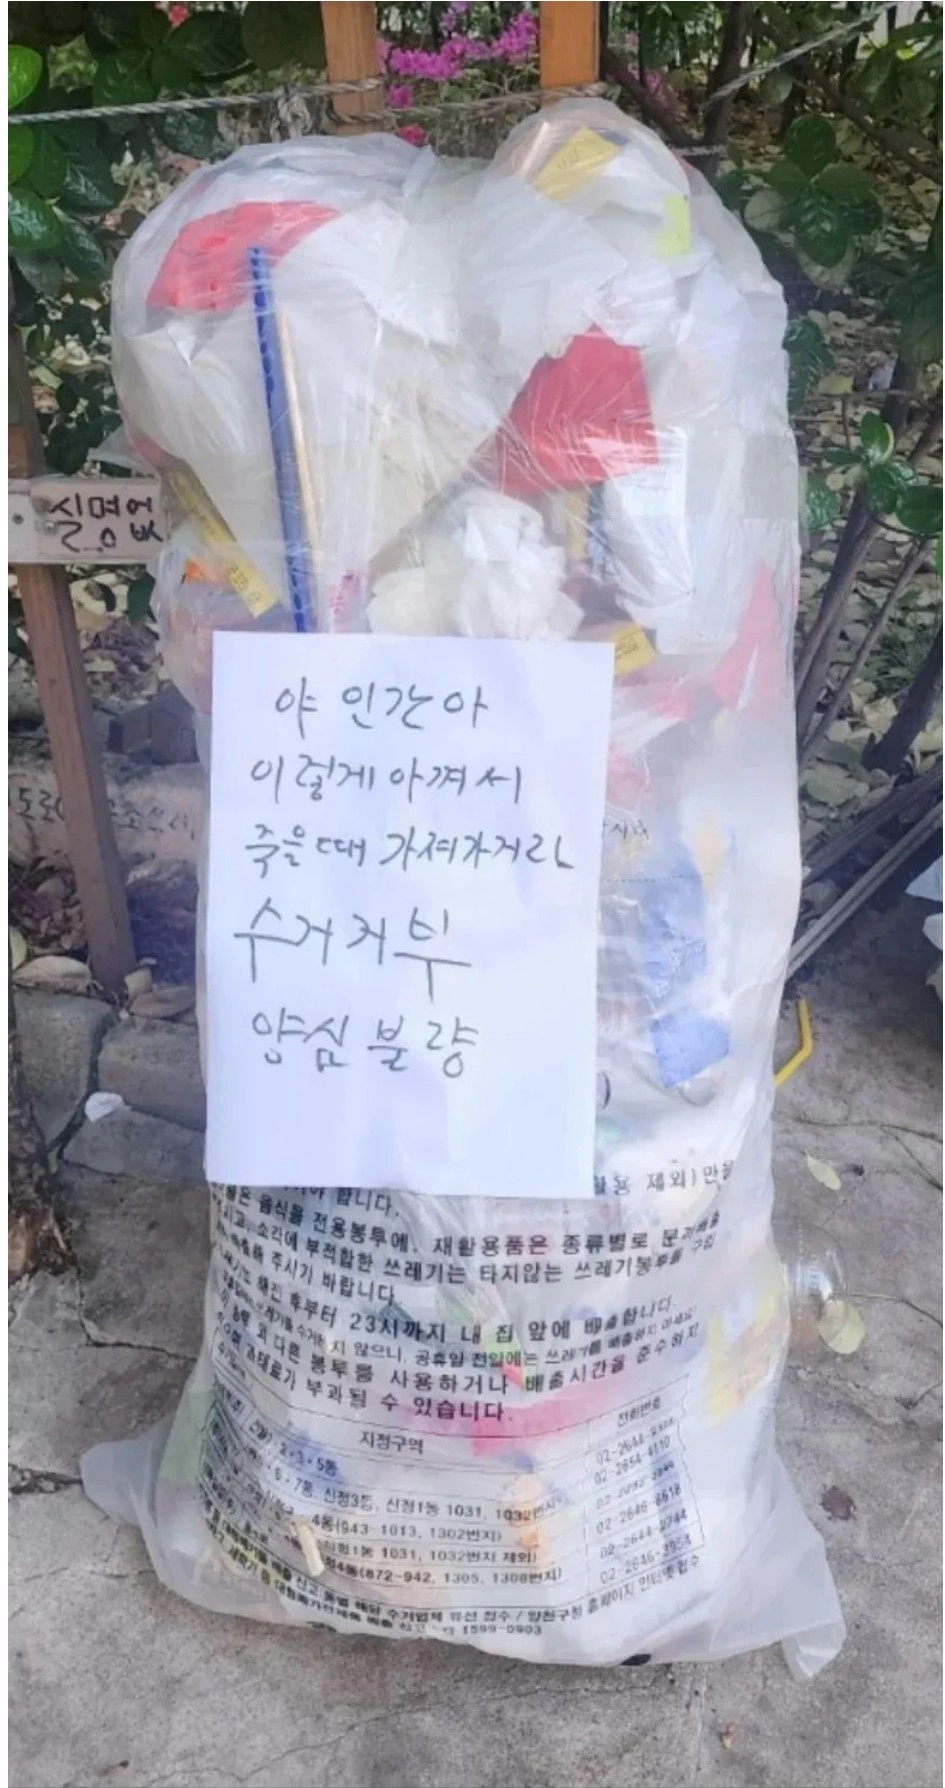 실명
야 인간아
이렇게 아껴서
죽을때 가져가거라
수거거부
양심불량
합니다.
용 제외)만을
음식물 전용봉투에, 재활용품은 종류별로
소각에 부적합한 쓰레기는 타지않는 쓰레기봉투를 구입
배출해 주시기 바랍니다.
해진 후부터 23시까지 내 집 앞에 배출합니다.
쓰레기를 수거하지 않으니, 공휴일 전일에는 쓰레기를 배출하지 마세요
다른 봉투를 사용하거나 배출시간을 준수하지
과태료가 부과될 수 있습니다.
지정구역 전화번호
2·3·5동
6·7동, 신정3동, 신정1동 1031, 1032번지
4동(943-1013, 1302번지)
1031, 1032번지 제외)
4동(872-942, 1305, 1308번지)
수거업체 유선 접수 / 양천구청 홈페이지 인터넷 접수
1599-0903